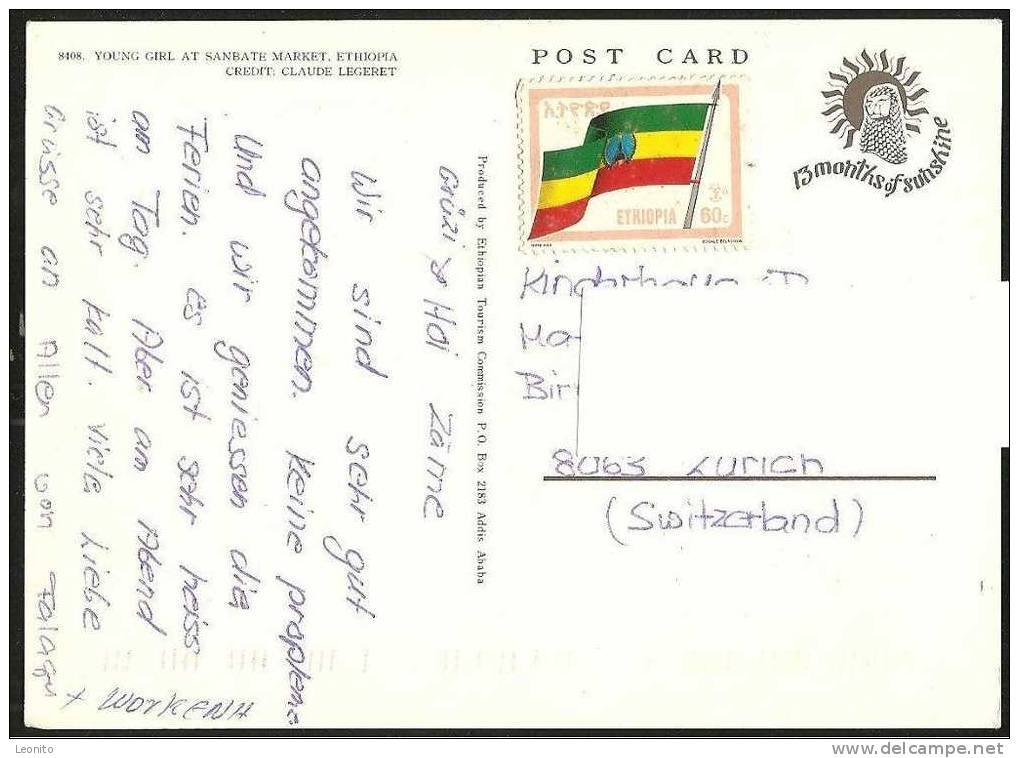 8408. YOUNG GIRL AT SANBATE MARKET, ETHIOPIA
CREDIT: CLAUDE LEGERET
POST CARD
13 months of sunshine
ኢትዮጵያ
ETHIOPIA 60c
Produced by Ethiopian Tourism Commission P.O. Box 2183 Addis Ababa
Grüzi + Hoi Zäme
Wir sind sehr gut
angekommen. Keine propleme
Und wir geniessen die
Ferien. Es ist sehr heiss
am Tag. Aber am Abend
ist sehr kalt. Viele Liebe
Grüsse an Allen von
+ WORKENH
8063 Zürich
(Switzerland)
Leonito
www.delcampe.net